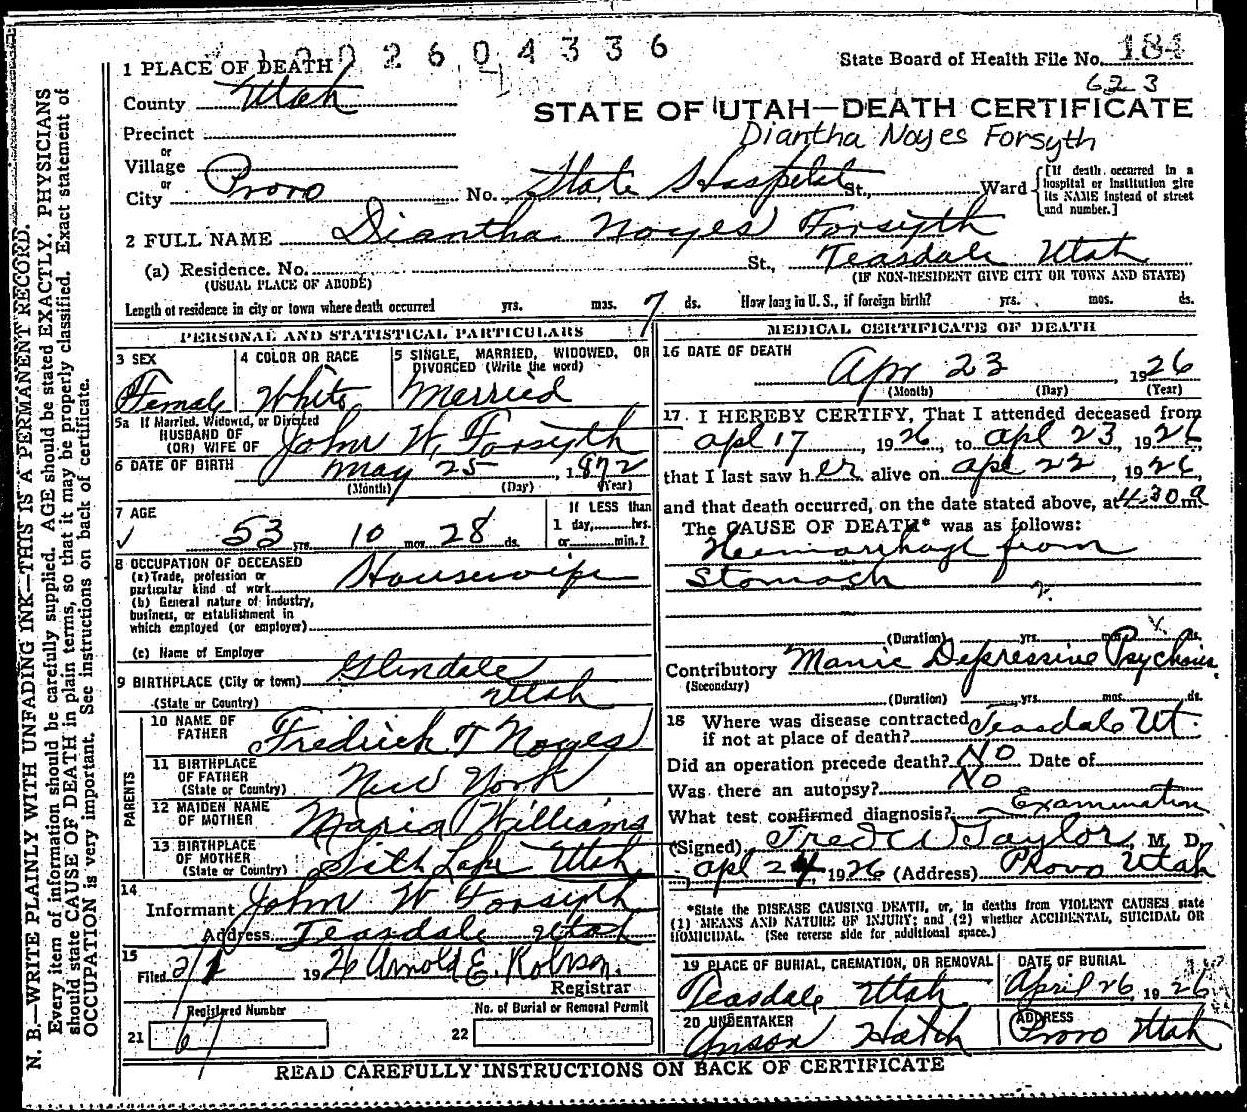 1002604336
State Board of Health File No. 184
623
1 PLACE OF DEATH
County Utah
STATE OF UTAH—DEATH CERTIFICATE
Diantha Noyes Forsyth
Precinct
or
Village
or
City Provo No. State Hospital St., Ward
[If death occurred in a hospital or institution give its NAME instead of street and number.]
2 FULL NAME Diantha Noyes Forsyth
(a) Residence. No. St., Teasdale Utah
(USUAL PLACE OF ABODE) (IF NON-RESIDENT GIVE CITY OR TOWN AND STATE)
Length of residence in city or town where death occurred yrs. mos. 7 ds. How long in U.S., if foreign birth? yrs. mos. ds.
PERSONAL AND STATISTICAL PARTICULARS
3 SEX
Female
4 COLOR OR RACE
White
5 SINGLE, MARRIED, WIDOWED, OR DIVORCED (Write the word)
Married
5a If Married, Widowed, or Divorced
HUSBAND OF
(OR) WIFE OF John W. Forsyth
6 DATE OF BIRTH May 25, 1872
(Month) (Day) (Year)
7 AGE
✓ 53 yrs. 10 mos. 28 ds.
If LESS than
1 day, hrs.
or min.?
8 OCCUPATION OF DECEASED
(a) Trade, profession or
particular kind of work Housewife
(b) General nature of industry,
business, or establishment in
which employed (or employer)
(c) Name of Employer
9 BIRTHPLACE (City or town) Glendale
(State or Country) Utah
PARENTS
10 NAME OF
FATHER Fredrick T Noyes
11 BIRTHPLACE
OF FATHER
(State or Country) New York
12 MAIDEN NAME
OF MOTHER Maria Williams
13 BIRTHPLACE
OF MOTHER
(State or Country) Salt Lake Utah
14
Informant John W Forsyth
Address Teasdale Utah
15
Filed 1926 Arnold E. Robison.
Registrar
Registered Number
21 67
No. of Burial or Removal Permit
22
MEDICAL CERTIFICATE OF DEATH
16 DATE OF DEATH
Apr 23, 1926
(Month) (Day) (Year)
17. I HEREBY CERTIFY, That I attended deceased from
Apl 17, 1926, to Apl 23, 1926,
that I last saw her alive on Apl 22, 1926,
and that death occurred, on the date stated above, at 4:30 a m.
The CAUSE OF DEATH* was as follows:
Hemorrhage from
Stomach
(Duration) yrs. mos. ds.
Contributory Manic Depressive Psychosis
(Secondary)
(Duration) yrs. mos. ds.
18 Where was disease contracted
if not at place of death? Teasdale Ut
Did an operation precede death? No Date of
Was there an autopsy? No
What test confirmed diagnosis? Examination
(Signed) Fred W Taylor, M. D.
Apl 24, 1926 (Address) Provo Utah
*State the DISEASE CAUSING DEATH, or, in deaths from VIOLENT CAUSES state
(1) MEANS AND NATURE OF INJURY; and (2) whether ACCIDENTAL, SUICIDAL OR
HOMICIDAL. (See reverse side for additional space.)
19 PLACE OF BURIAL, CREMATION, OR REMOVAL
Teasdale Utah
DATE OF BURIAL
April 26, 1926
20 UNDERTAKER
Anson Hatch
ADDRESS
Provo Utah
READ CAREFULLY INSTRUCTIONS ON BACK OF CERTIFICATE
N. B.—WRITE PLAINLY WITH UNFADING INK—THIS IS A PERMANENT RECORD.
Every item of information should be carefully supplied. AGE should be stated EXACTLY. PHYSICIANS
should state CAUSE OF DEATH in plain terms, so that it may be properly classified. Exact statement of
OCCUPATION is very important. See instructions on back of certificate.